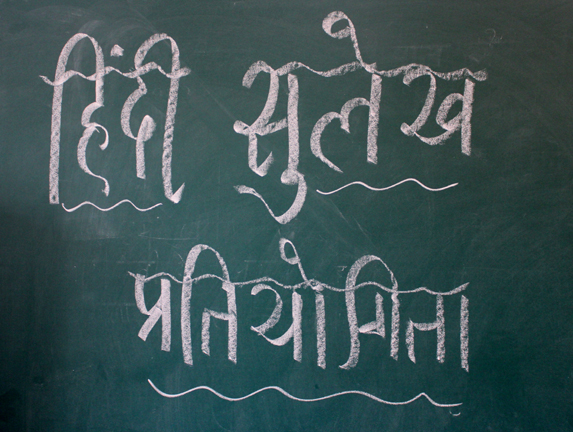 हिंदी सुलेख
प्रतियोगिता